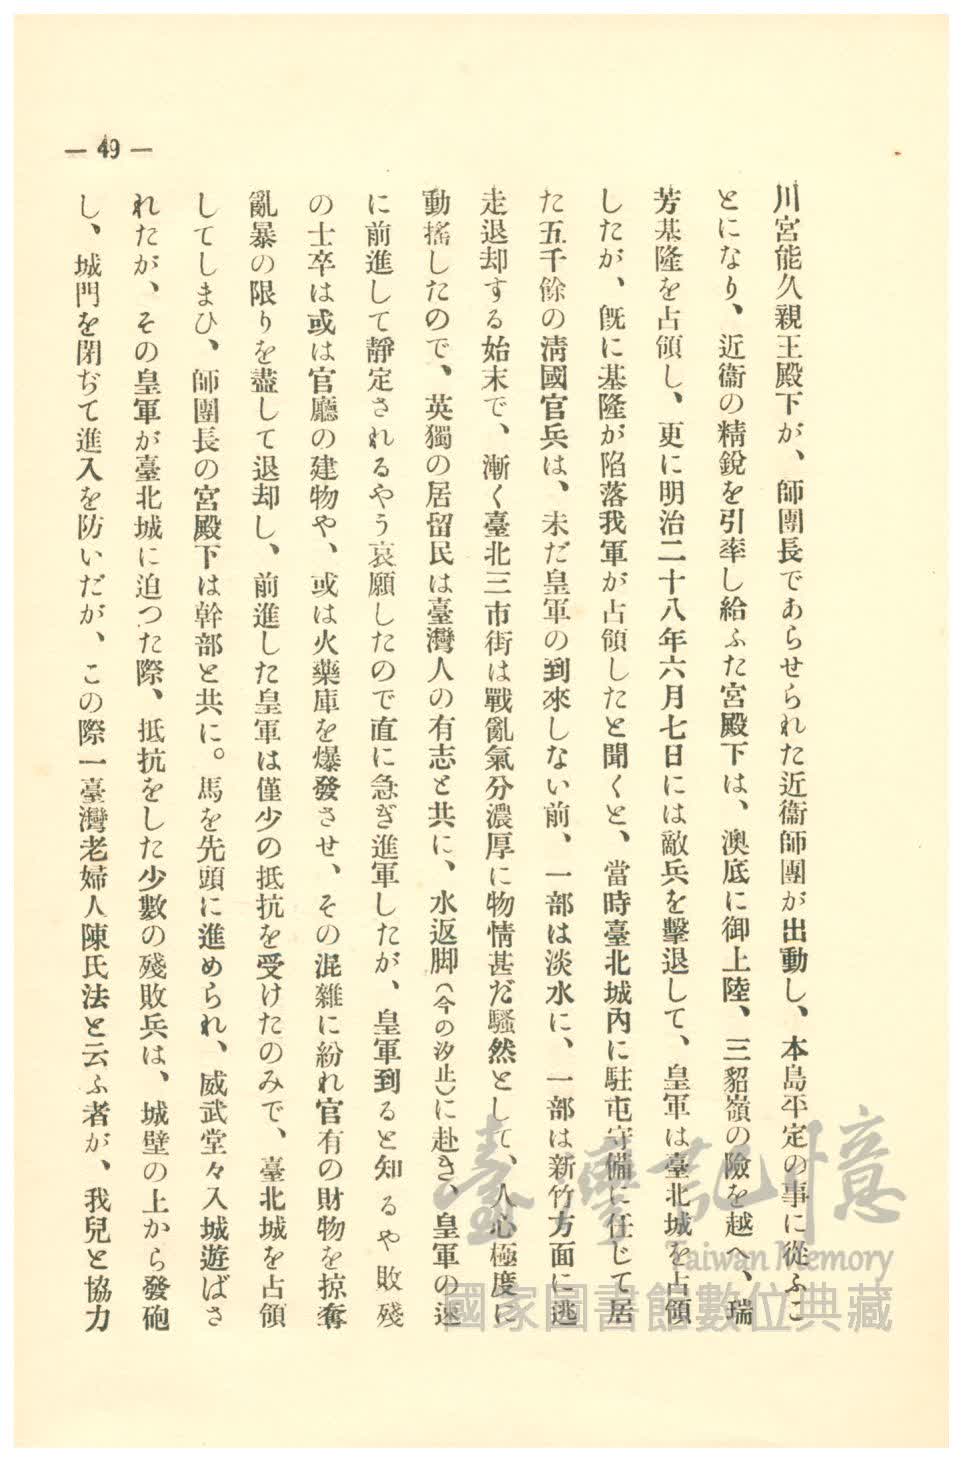 — 49 —
川宮能久親王殿下が、師團長であらせられた近衞師團が出動し、本島平定の事に從ふこ
とになり、近衞の精銳を引率し給ふた宮殿下は、澳底に御上陸、三貂嶺の險を越へ、瑞
芳基隆を占領し、更に明治二十八年六月七日には敵兵を擊退して、皇軍は臺北城を占領
したが、旣に基隆が陷落我軍が占領したと聞くと、當時臺北城內に駐屯守備に任じて居
た五千餘の淸國官兵は、未だ皇軍の到來しない前、一部は淡水に、一部は新竹方面に逃
走退却する始末で、漸く臺北三市街は戰亂氣分濃厚に物情甚だ騷然として、人心極度に
動搖したので、英獨の居留民は臺灣人の有志と共に、水返脚(今の汐止)に赴き、皇軍の迷
に前進して靜定されるやう哀願したので直に急ぎ進軍したが、皇軍到ると知るや敗殘
の士卒は或は官廳の建物や、或は火藥庫を爆發させ、その混雜に紛れ官有の財物を掠奪
亂暴の限りを盡して退却し、前進した皇軍は僅少の抵抗を受けたのみで、臺北城を占領
してしまひ、師團長の宮殿下は幹部と共に。馬を先頭に進められ、威武堂々入城遊ばさ
れたが、その皇軍が臺北城に迫つた際、抵抗をした少數の殘敗兵は、城壁の上から發砲
し、城門を閉ぢて進入を防いだが、この際一臺灣老婦人陳氏法と云ふ者が、我兒と協力
臺灣記憶
Taiwan Memory
國家圖書館數位典藏